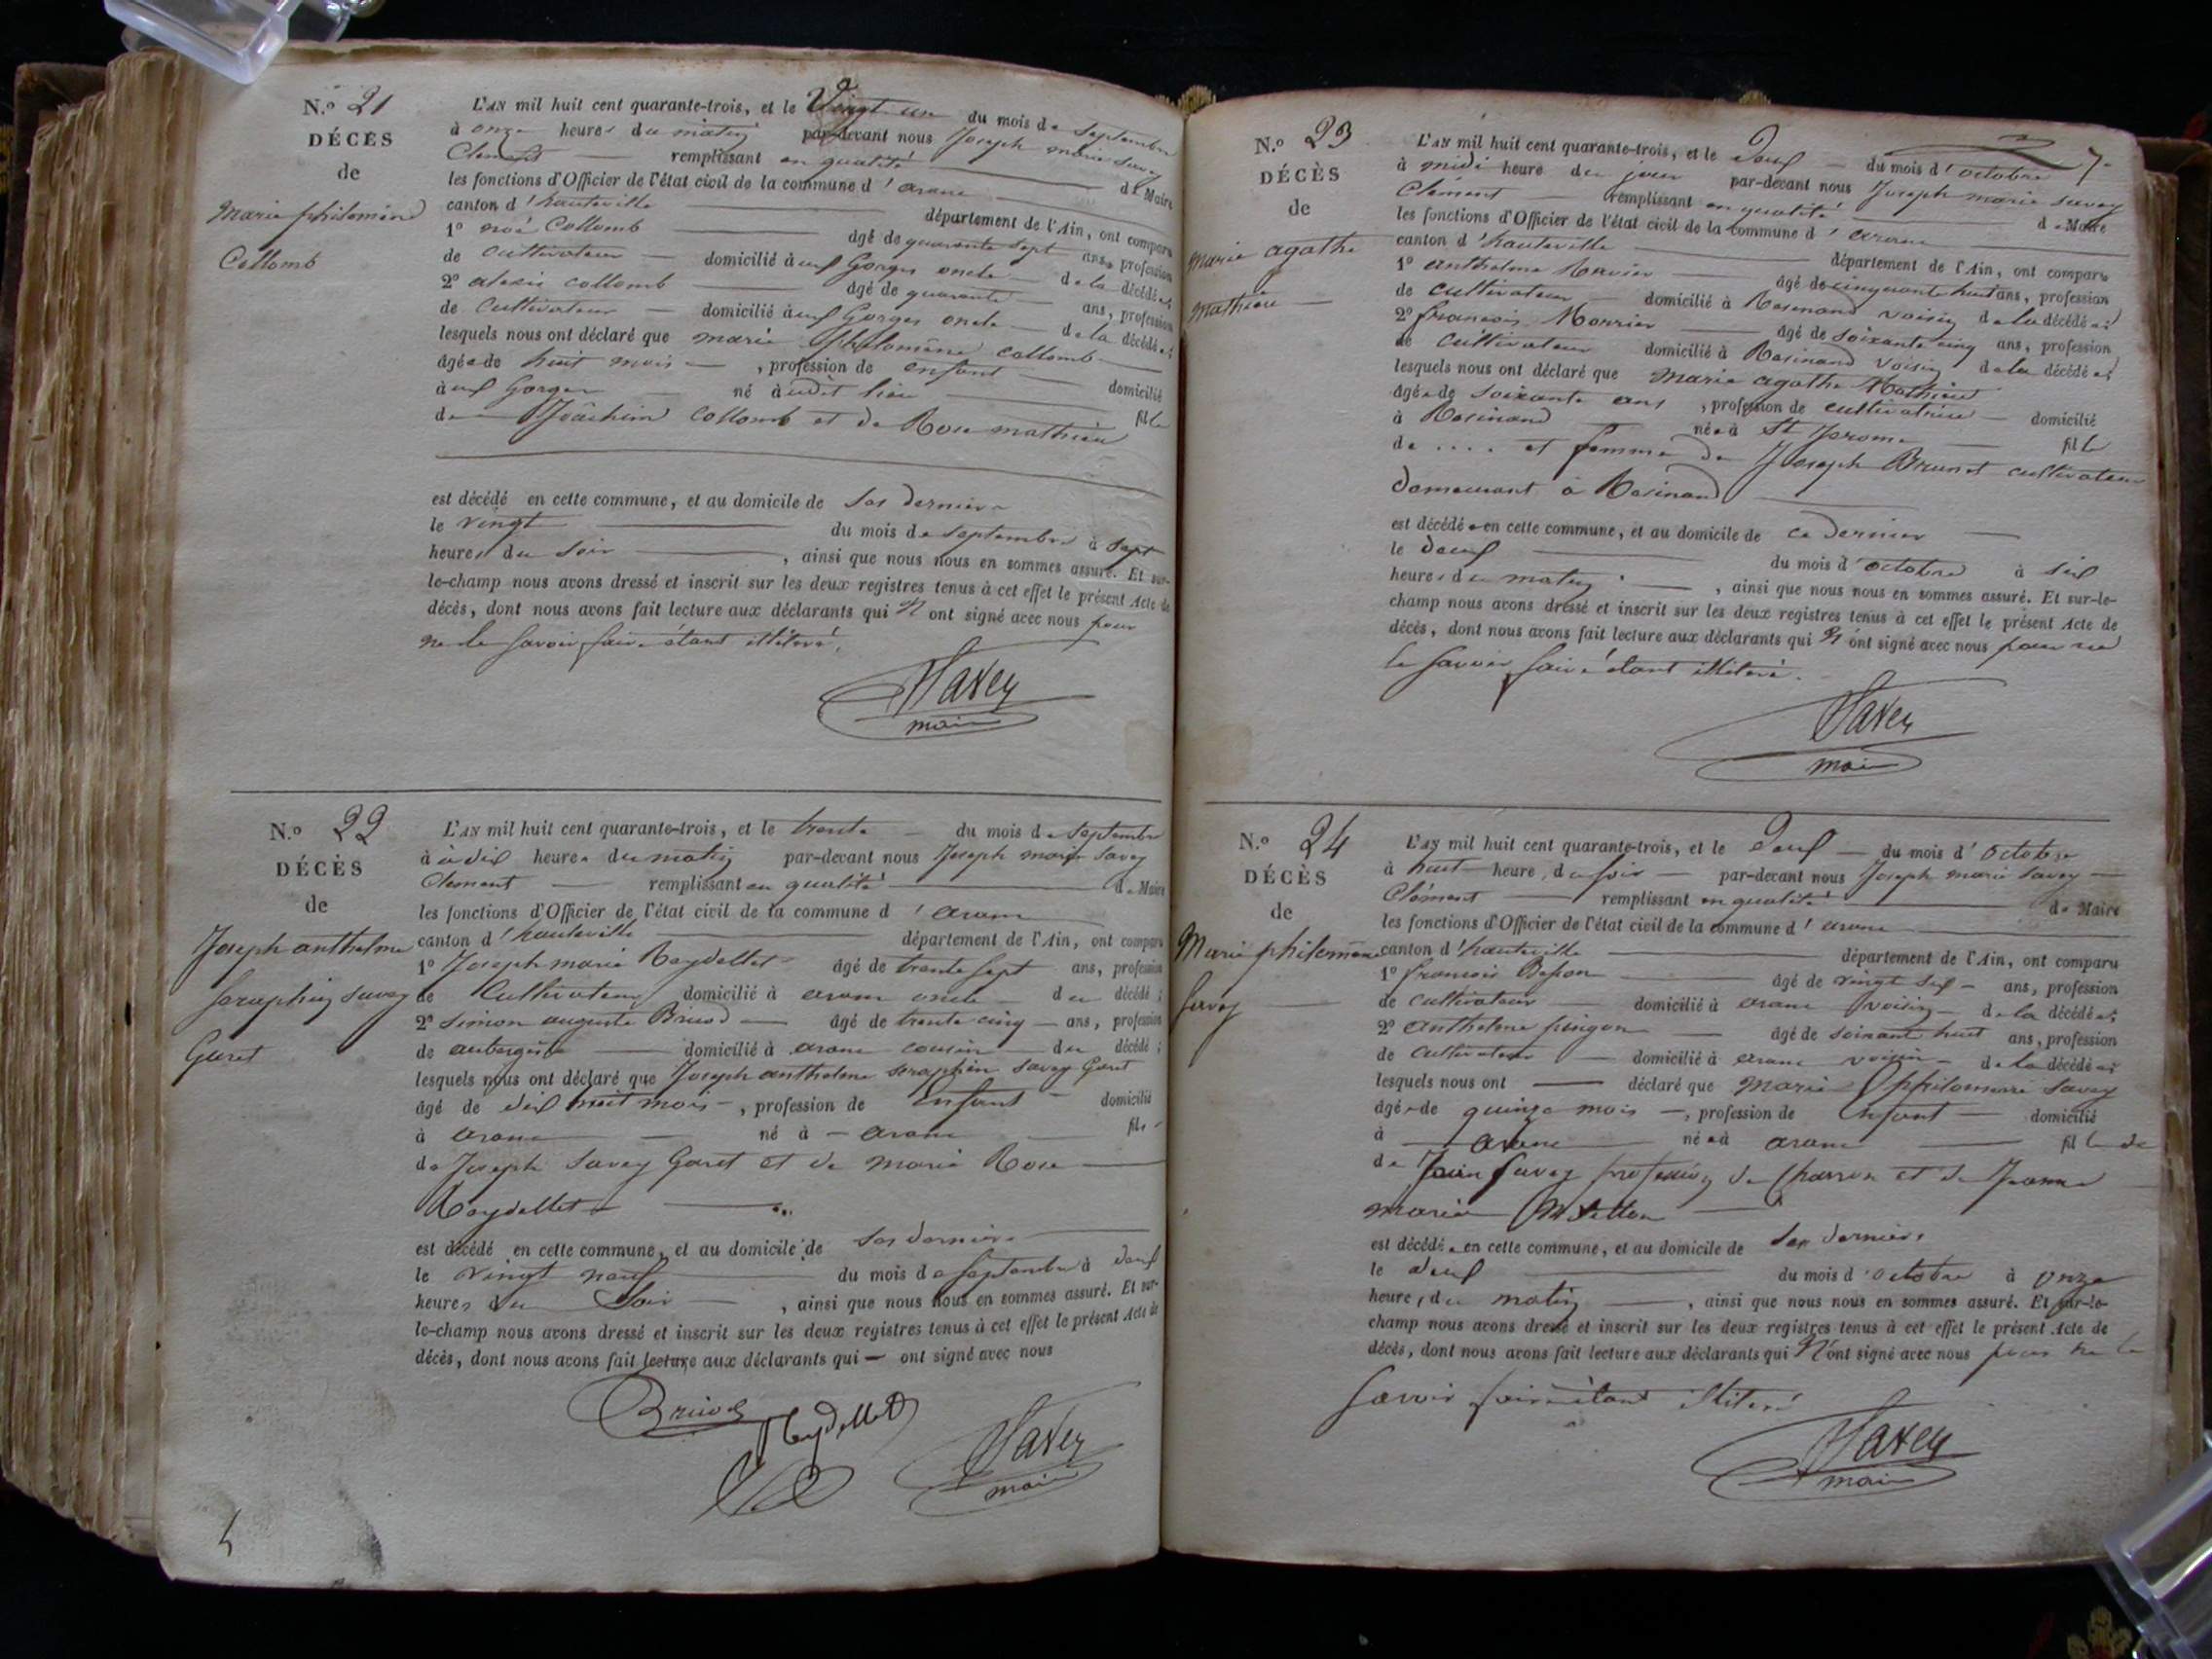 N.o 21
DÉCÈS
de
Marie philomène
Collomb
L'AN mil huit cent quarante-trois, et le Vingt un du mois de Septembre
à onze heures du matin par-devant nous Joseph marie Savey
Clement remplissant en qualité de Maire
les fonctions d'Officier de l'état civil de la commune d'arane
canton d'hauteville département de l'Ain, ont comparu
1o noé Collomb âgé de quarante sept ans, profession
de cultivateur domicilié à Gorges oncle de la décédée;
2o alexis collomb âgé de quarante ans, profession
de Cultivateur domicilié à Gorges oncle de la décédée;
lesquels nous ont déclaré que marie philomène collomb
âgée de huit mois, profession de enfant domicilié
à Gorges né audit lieu fille
de Joâchim Collomb et de Rose mathieu
est décédé en cette commune, et au domicile de ses derniers
le vingt du mois de septembre à sept
heures du soir, ainsi que nous nous en sommes assuré. Et sur-
le-champ nous avons dressé et inscrit sur les deux registres tenus à cet effet le présent Acte de
décès, dont nous avons fait lecture aux déclarants qui N'ont signé avec nous pour
ne le savoir faire étant illiteré.
Savey
maire
N.o 22
DÉCÈS
de
Joseph anthelme
Seraphin Savey
Guret
L'AN mil huit cent quarante-trois, et le trente du mois de Septembre
à à dix heures du matin par-devant nous Joseph marie Savey
Clement remplissant en qualité de Maire
les fonctions d'Officier de l'état civil de la commune d'arane
canton d'hauteville département de l'Ain, ont comparu
1o Joseph marie Reydellet âgé de trente sept ans, profession
de Cultivateur domicilié à arane oncle du décédé;
2o Simon auguste Brunod âgé de trente cinq ans, profession
de aubergiste domicilié à arane cousin du décédé;
lesquels nous ont déclaré que Joseph anthelme seraphin Savey Guret
âgé de dix huit mois, profession de Enfant domicilié
à arane né à arane fils
de Joseph Savey Guret et de marie Rose
Reydellet
est décédé en cette commune, et au domicile de ses derniers
le vingt neuf du mois de septembre à
heures du Soir, ainsi que nous nous en sommes assuré. Et sur-
le-champ nous avons dressé et inscrit sur les deux registres tenus à cet effet le présent Acte de
décès, dont nous avons fait lecture aux déclarants qui — ont signé avec nous
Reydellet
Savey
maire
N.o 23
DÉCÈS
de
Marie agathe
Mathieu
L'AN mil huit cent quarante-trois, et le Deux du mois d'octobre
à midi heure du jour par-devant nous Joseph marie Savey
Clement remplissant en qualité de Maire
les fonctions d'Officier de l'état civil de la commune d'arane
canton d'hauteville département de l'Ain, ont comparu
1o anthelme Ravier âgé de cinquante huit ans, profession
de cultivateur domicilié à Resinand voisin de la décédée;
2o francois Morrier âgé de soixante cinq ans, profession
de cultivateur domicilié à Resinand voisin de la décédée;
lesquels nous ont déclaré que marie agathe Mathieu
âgée de soixante ans, profession de cultivatrice domicilié
à Resinand née à St Jerome fille
de .... et femme de Joseph Brunet cultivateur
demeurant à Resinand
est décédée en cette commune, et au domicile de ce dernier
le deux du mois d'octobre à six
heures du matin, ainsi que nous nous en sommes assuré. Et sur-le-
champ nous avons dressé et inscrit sur les deux registres tenus à cet effet le présent Acte de
décès, dont nous avons fait lecture aux déclarants qui N'ont signé avec nous pour ne
le savoir faire étant illiteré.
Savey
maire
N.o 24
DÉCÈS
de
Marie philomène
Savey
L'AN mil huit cent quarante-trois, et le Deux du mois d'Octobre
à huit heures du soir par-devant nous Joseph marie Savey
Clément remplissant en qualité de Maire
les fonctions d'Officier de l'état civil de la commune d'arane
canton d'hauteville département de l'Ain, ont comparu
1o francois Besson âgé de vingt six ans, profession
de cultivateur domicilié à arane voisin de la décédée;
2o anthelme pingon âgé de soixante huit ans, profession
de Cultivateur domicilié à arane voisin de la décédée;
lesquels nous ont déclaré que Marie philomène Savey
âgée de quinze mois, profession de Enfant domicilié
à arane née à arane fille de
de Savey profession de charron et de Jeanne
marie
est décédée en cette commune, et au domicile de ses derniers
le deux du mois d'octobre à onze
heures du matin, ainsi que nous nous en sommes assuré. Et sur-le-
champ nous avons dressé et inscrit sur les deux registres tenus à cet effet le présent Acte de
décès, dont nous avons fait lecture aux déclarants qui N'ont signé avec nous pour ne le
savoir faire étant illiteré
Savey
maire